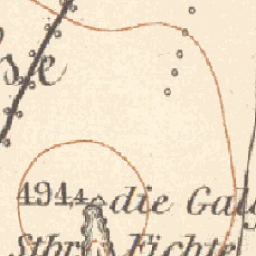 se
494,4 die Galg
Stbr. Fichte